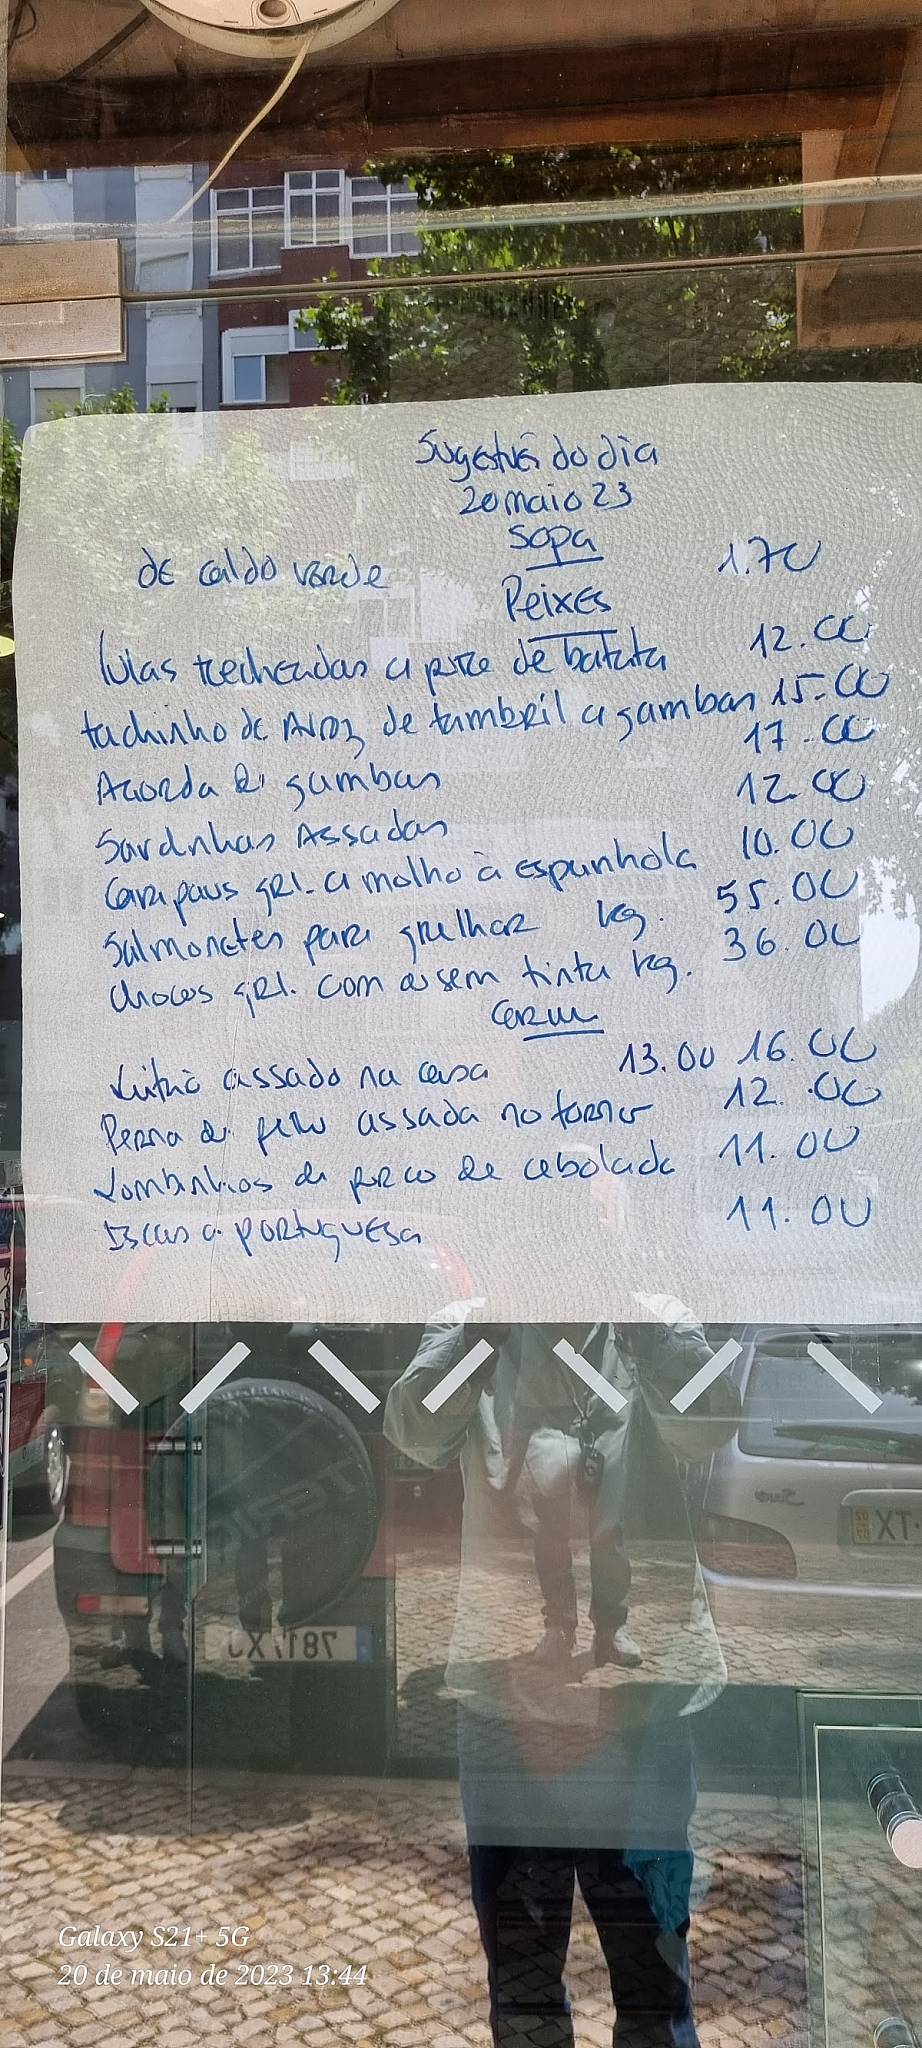 Sugestões do dia
20 maio 23
Sopa
de caldo verde 1.70
Peixes
lulas recheadas c/ pure de batata 12.00
tachinho de Arroz de tamboril c/ gambas 15.00
Açorda de gambas 17.00
Sardinhas Assadas 12.00
Carapaus grl. c/ molho à espanhola 10.00
Salmonetes para grelhar kg. 55.00
chocos grl. com ou sem tinta kg. 36.00
Carne
Leitão assado na casa 13.00 16.00
Perna de assada no forno 12.00
Lombinhos de porco de cebolada 11.00
Iscas a portuguesa 11.00
TERIO
7817XJ
XT
Galaxy S21+ 5G
20 de maio de 2023 13:44